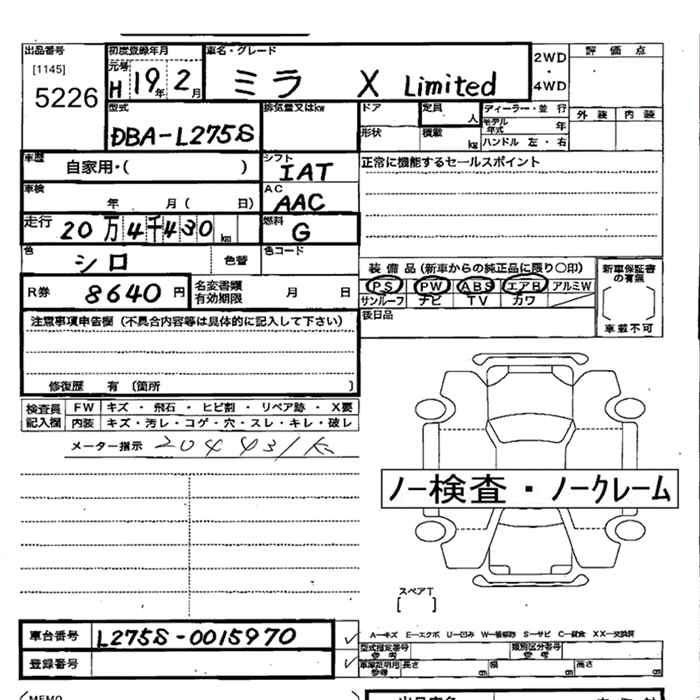 出品番号 初度登録年月 車名・グレード 評 価 点
[1145] 元号 2WD
5226 H 19年 2月 ミラ X Limited ・
4WD
型式 排気量又はkw ドア 定員 人 ディーラー・並 行 外 装 内 装
DBA-L275S 形状 積載 kg モデル年式 年
ハンドル 左・右
車歴 自家用・( ) シフト IAT 正常に機能するセールスポイント
車検 年 月( 日) AC AAC
走行 20万4千430 km 燃料 G
色 シロ 色替 色コード
装 備 品 (新車からの純正品に限り〇印) 新車保証書の有無
R券 8640円 名変書類有効期限 月 日 PS PW ABS エアB アルミW
サンルーフ ナビ TV カワ 車載不可
注意事項申告欄(不具合内容等は具体的に記入して下さい) 後日品
修復歴 有 〔箇所 〕
検査員 FW キズ ・ 飛石 ・ ヒビ割 ・ リペア跡 ・ X要
記入欄 内装 キズ・汚レ・コゲ・穴・スレ・キレ・破レ
メーター指示 204431K
ノー検査・ノークレーム
スペアT
[ ]
車台番号 L275S-0015970 A-キズ E-エクボ U-凹み W-補修跡 S-サビ C-腐食 XX-交換済
型式指定番号 参考 類別区分番号 参考
登録番号 車庫証明用参考 長さ cm 幅 cm 高さ cm
MEMO